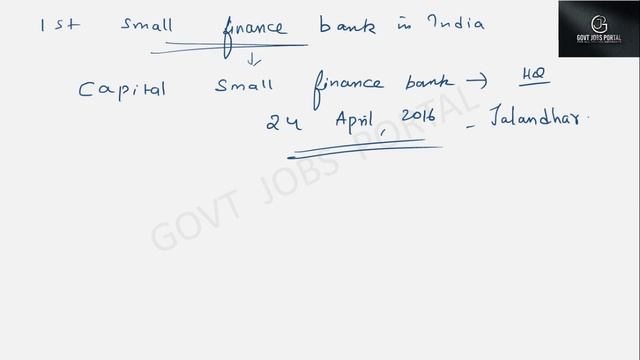 1st small finance bank in India
Capital small finance bank → HQ
24 April, 2016 - Jalandhar.
GOVT JOBS PORTAL
GJ
GOVT JOBS PORTAL